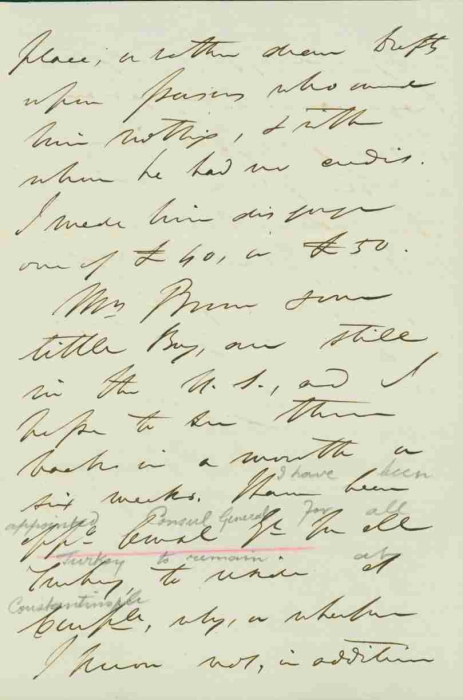 place, or rather drew Drafts
upon persons who owed
him nothing, & with
whom he had no credit.
I made him disgorge
one of £40, or £50.
Mrs Brown & our
little Boy, are still
in the U.S., and I
hope to see them
back in a month or
I have been
six weeks. Have been
appointed Consul General for all
appd Consul Gl for all
Turkey to remain at
Turkey, to reside at
Constantinople
Conple, why, or whether
I know not, in addition